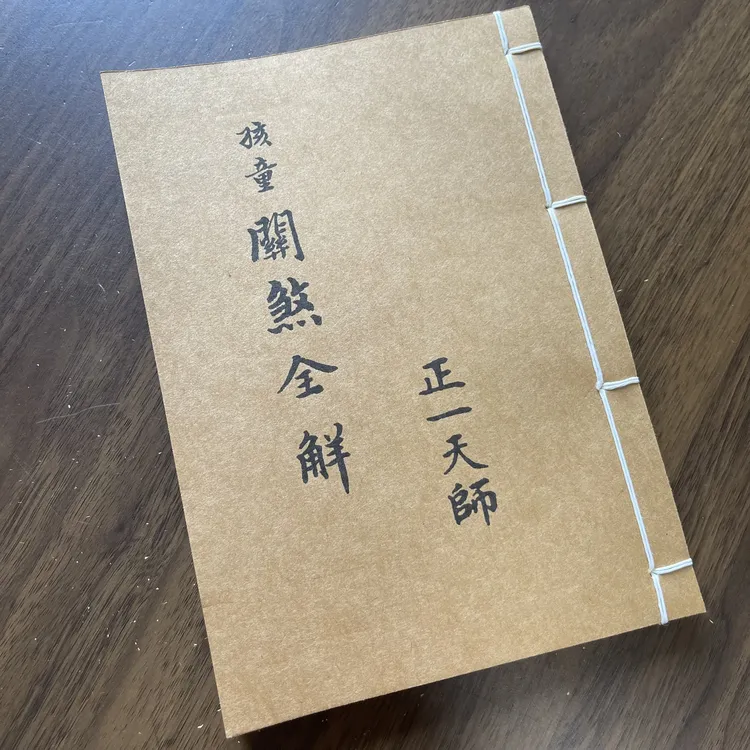 正一天師
孩童關煞全觧